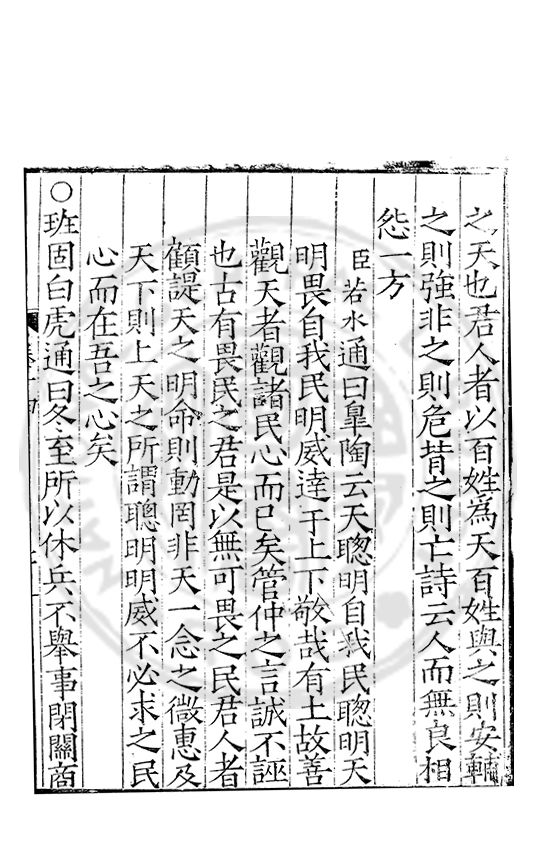 之天也君人者以百姓爲天百姓與之則安輔
之則強非之則危背之則亡詩云人而無良相
怨一方
臣若水通曰臯陶云天聰明自我民聰明天
明畏自我民明威達于上下敬哉有土故善
觀天者觀諸民心而已矣管仲之言誠不誣
也古有畏民之君是以無可畏之民君人者
顧諟天之明命則動罔非天一念之微惠及
天下則上天之所謂聰明明威不必求之民
心而在吾之心矣
○班固白虎通曰冬至所以休兵不舉事閉關商